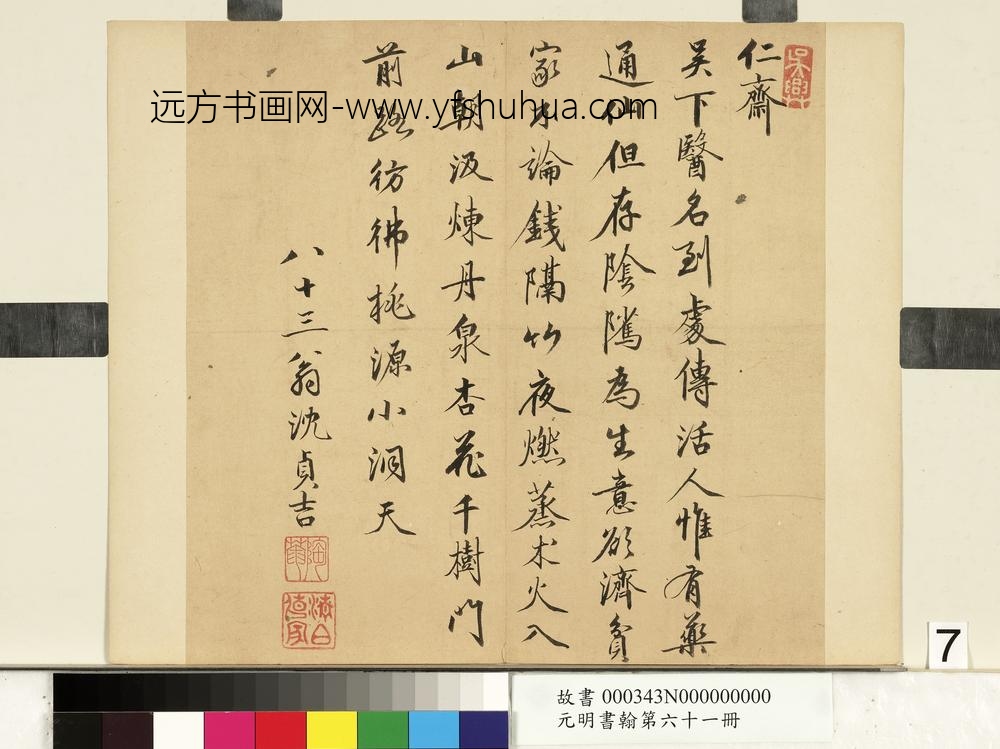 仁齋
吴下醫名到處傳活人惟有藥
通仙但存陰隲為生意欲濟貧
家不論錢隔竹夜燃蒸术火入
山朝汲煉丹泉杏花千樹門
前路彷彿桃源小洞天
八十三翁沈貞吉
远方书画网-www.yfshuhua.com
7
故書 000343N000000000
元明書翰第六十一冊